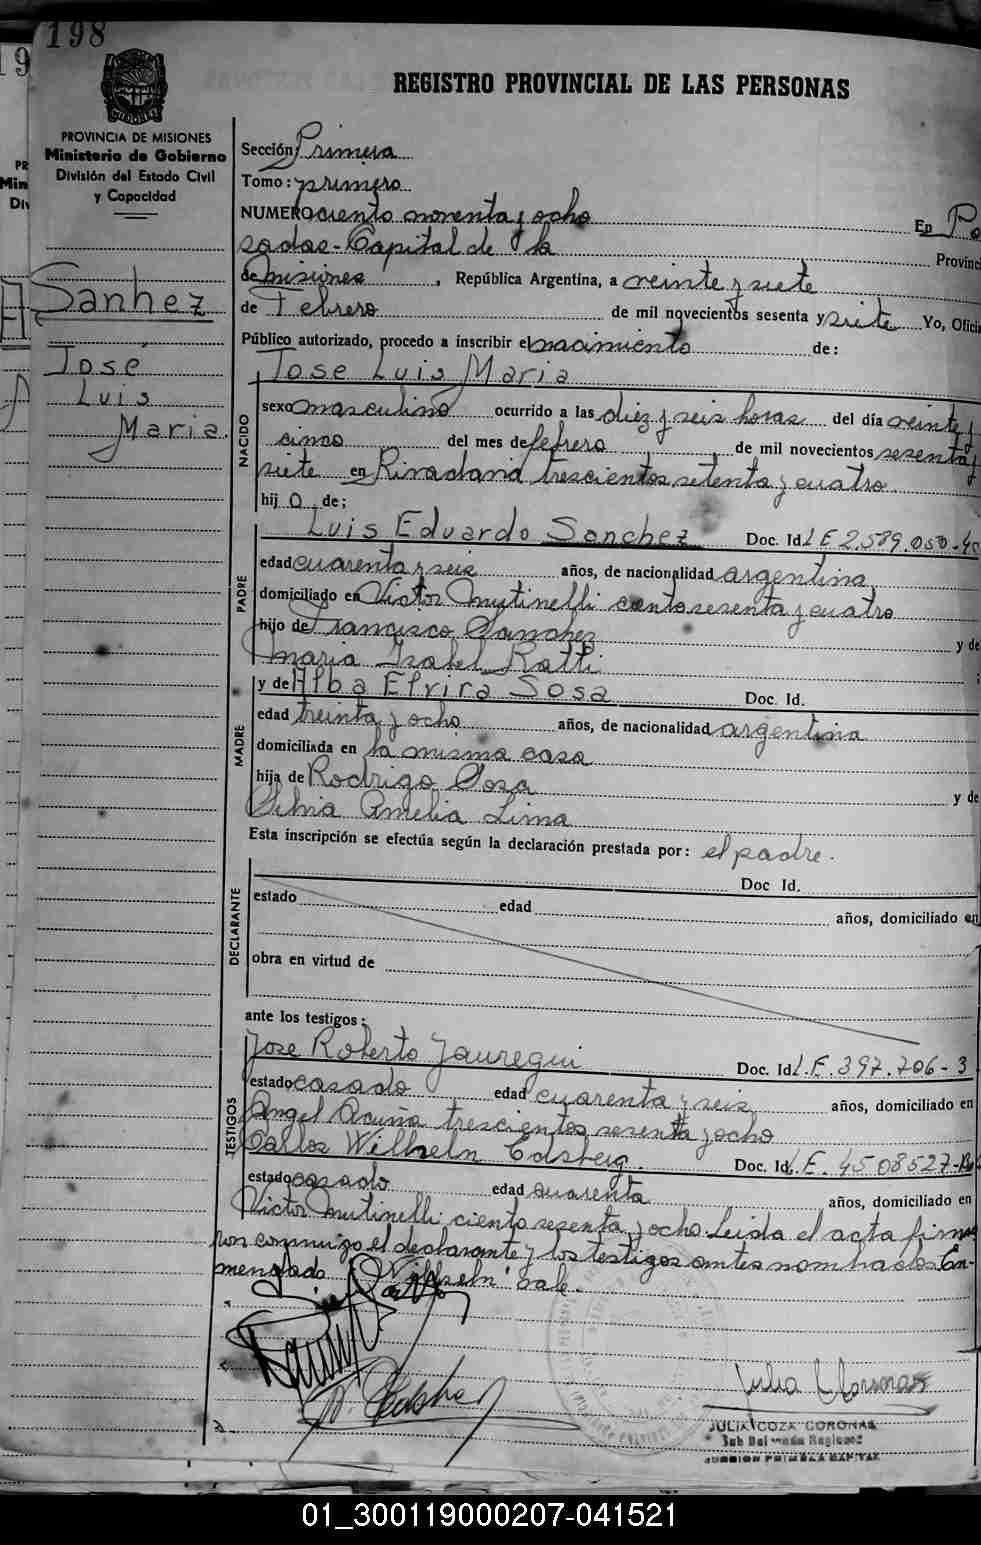 198
REGISTRO PROVINCIAL DE LAS PERSONAS
PROVINCIA DE MISIONES
Ministerio de Gobierno
División del Estado Civil
y Capacidad
Sanhez
José
Luis
Maria.
Sección: Primera
Tomo: primero
NUMERO ciento noventa y ocho En Po
sadas-Capital de la Provinci
de misiones, República Argentina, a veinte y siete
de Febrero de mil novecientos sesenta y siete Yo, Ofici
Público autorizado, procedo a inscribir el nacimiento de:
Jose Luis Maria
NACIDO
sexo masculino ocurrido a las diez y seis horas del día veinte y
cinco del mes de febrero de mil novecientos sesenta y
siete en Rivadavia trescientos setenta y cuatro
hij o de;
Luis Eduardo Sanchez Doc. Id. L E 2.589.050-40
PADRE
edad cuarenta y seis años, de nacionalidad argentina
domiciliado en Victor Mutinelli ciento sesenta y cuatro
hijo de Francisco Sanchez y de
Maria Isabel Ratti ;
y de Alba Elvira Sosa Doc. Id.
MADRE
edad treinta y ocho años, de nacionalidad argentina
domiciliada en la misma casa
hija de Rodrigo Sosa y de
Silvia Amelia Lima
Esta inscripción se efectúa según la declaración prestada por: el padre.
DECLARANTE
Doc Id.
estado edad años, domiciliado en
obra en virtud de
ante los testigos:
Jose Roberto Jauregui Doc. Id. L.E. 397.706-3
TESTIGOS
estado casado edad cuarenta y seis años, domiciliado en
Angel Acuña trescientos sesenta y ocho
Carlos Wilhseln Doc. Id. L.E. 4508527-
estado casado edad cuarenta años, domiciliado en
Victor Mutinelli ciento sesenta y ocho. Leida el acta firma
por conmigo el declarante y los testigos antes nombrados. En-
mendado "Wilhseln" Vale.
JULIA COZA CORONAS
01_300119000207-041521